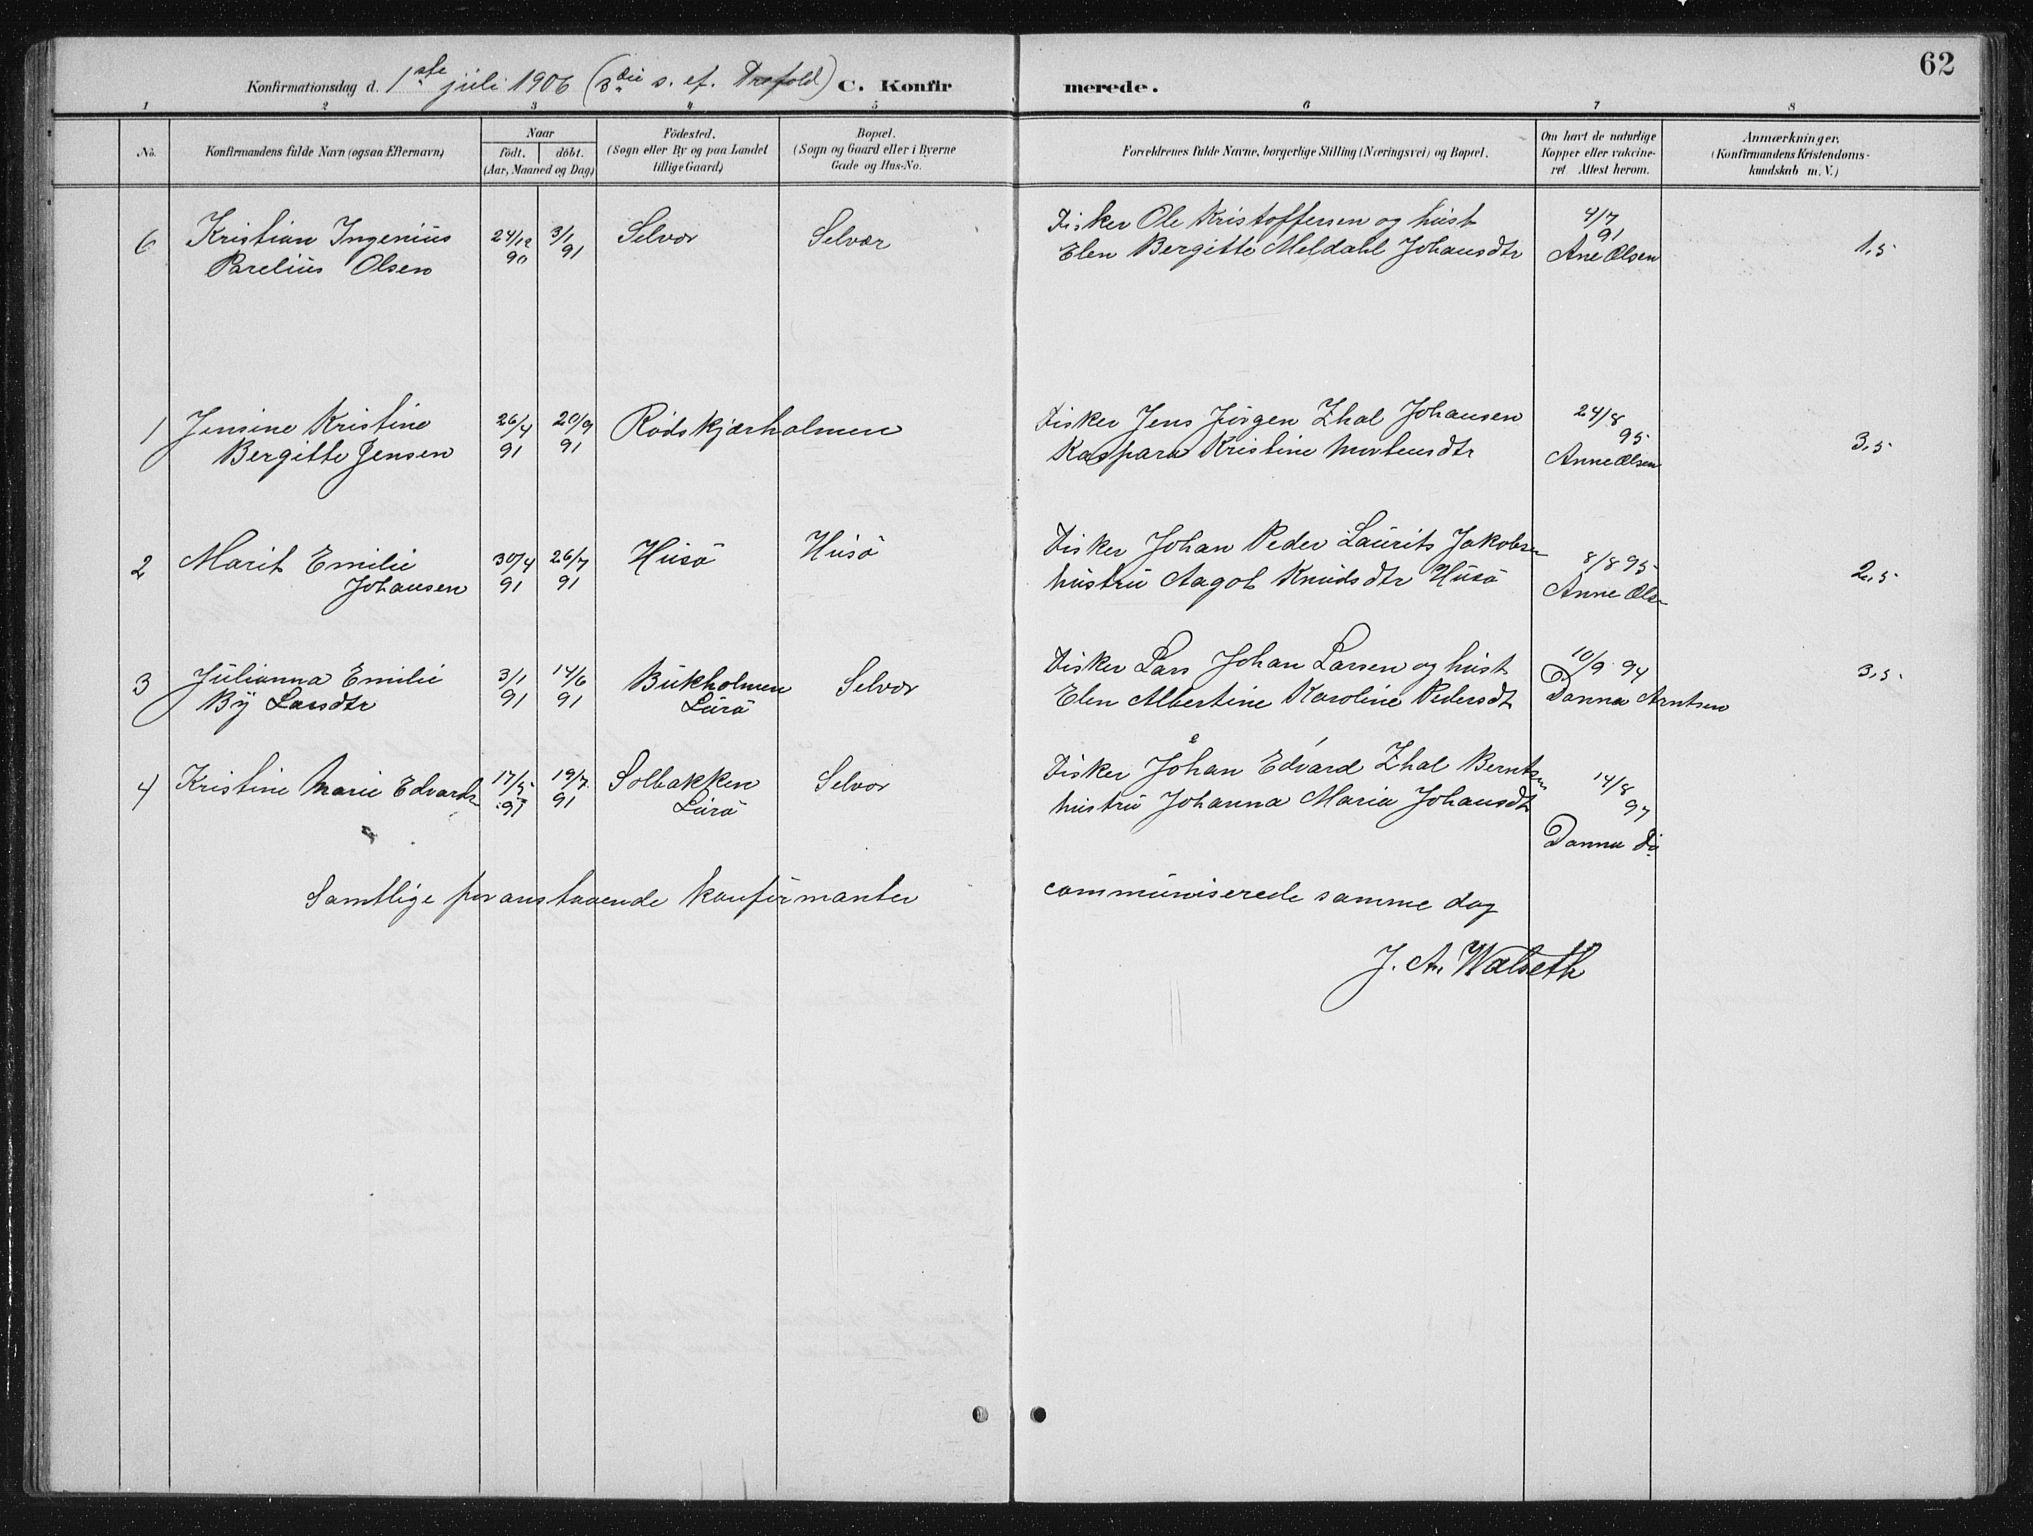 62
Konfirmationsdag d. 1ste juli 1906 (3die s. ef. Trefold) C. Konfirmerede.
1 2 3 4 5 6 7 8
No.
Konfirmandens fulde Navn (ogsaa Efternavn)
Naar
födt. döbt.
(Aar, Maaned og Dag)
Födested.
(Sogn eller By og paa Landet
tillige Gaard)
Bopæl.
(Sogn og Gaard eller i Byerne
Gade og Hus-No.
Forældrenes fulde Navne, borgerlige Stilling (Næringsvei) og Bopæl.
Om havt de naturlige
Kopper eller vakcine-
ret. Attest herom.
Anmærkninger.
(Konfirmandens Kristendoms-
kundskab m. V.)
6 Kristian Ingenius 24/12 3/1 Selvær Selvær Fisker Ole Kristoffersen og hust 4/7
Parelius Olsen 90 91 Elen Bergitte Meldahl Johansdtr 91 Ane Olsen 1,5
1 Jensine Kristine 26/4 20/9 Rödskjærholmen Fisker Jens Jörgen Zhal Johansen 24/8
Bergitte Jensen 91 91 Kaspara Kristine Mortensdtr 95 Anne Olsen 3,5
2 Marit Emilie 30/4 26/7 Husö Husö Fisker Johan Peder Laurits Jakobsen 8/8 95
Johansen 91 91 hustru Aagot Knudsdtr Husö Anne Olsen 2,5
3 Julianna Emilie 3/1 14/6 Bukholmen Selvær Fisker Lars Johan Larsen og hust 10/9 94 3,5
By Larsdtr 91 91 Lurö Elen Albertine Karoline Pedersdt Danna Arntsen
4 Kristine Marie Edvards 17/5 19/7 Solbakken Selvær Fisker Johan Edvard Zhal Berntsen 14/8
91 91 Lurö hustru Johanna Maria Johansdt 97
Danna Do
Samtlige foranstaaende konfirmanter communiserede samme dag
J. A. Walseth